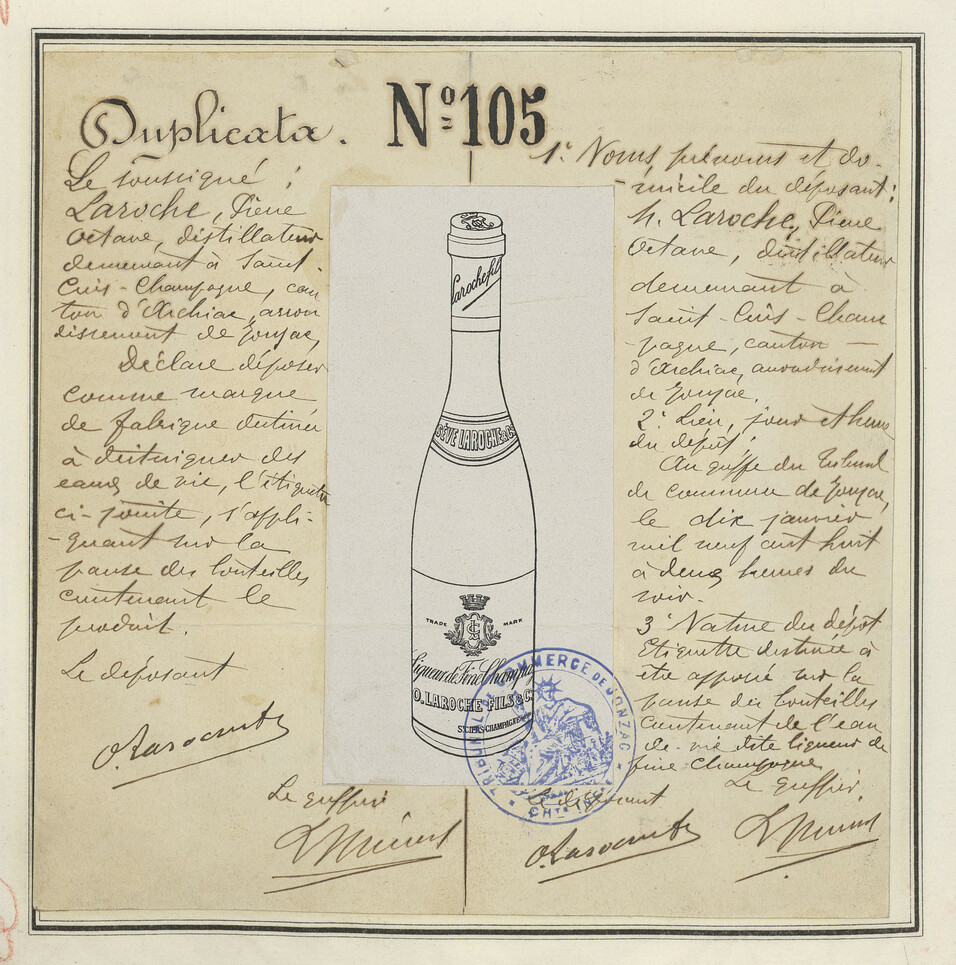 Duplicata.
N° 105
Le soussigné :
Laroche, Pierre
Octave, distillateur
demeurant à Saint-
Ciers-Champagne, can
ton d'Archiac, arron
dissement de Jonzac,
Déclare déposer
comme marque
de fabrique destinée
à distinguer des
eaux de vie, l'étiquette
ci-jointe, s'appli-
-quant sur la
panse des bouteilles
contenant le
produit.
Le déposant
Le greffier
Laroche fils
SÈVE LAROCHE & Cº
TRADE MARK
Liqueur de Fine Champag
O. LAROCHE FILS & Cº
ST CIERS-CHAMPAGNE
TRIBUNAL DE COMMERCE DE JONZAC
CHTE INFRE
1° Noms, prénoms et do-
-micile du déposant :
M. Laroche, Pierre
Octave, distillateur
demeurant à
Saint-Ciers-Cham
-pagne, canton
d'Archiac, arrondissement
de Jonzac.
2° Lieu, jour et heure
du dépôt :
Au greffe du Tribunal
de commerce de Jonzac,
le dix janvier
mil neuf cent huit
à deux heures du
soir.
3° Nature du dépôt
Etiquette destinée à
être apposée sur la
panse des bouteilles
contenant de l'eau
-de-vie dite liqueur de
fine champagne
Le déposant
Le greffier